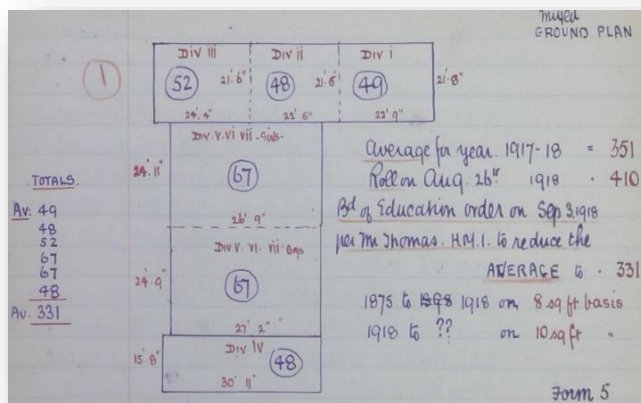 mixed
GROUND PLAN
1
Div III Div ii Div i
52 21'.6" 48 21'.8" 49 21'.8"
24'.4" 22'6" 22'9"
Div V. VI VII - Girls -
24'.11"
67
26' 9"
Div V. VI. VII - Boys
24'.9"
67
27' 2"
Div IV
15'8" 48
30' 11"
TOTALS.
Av: 49
48
52
67
67
48
Av. 331
Average for year 1917-18 = 351
Roll on Aug. 26th 1918 . 410
Bd of Education order on Sep 3.1918
per Mr Thomas. H.M.I. to reduce the
AVERAGE to . 331
1875 to 1918 on 8 sq ft basis
1918 to ?? on 10 sq ft "
Form 5